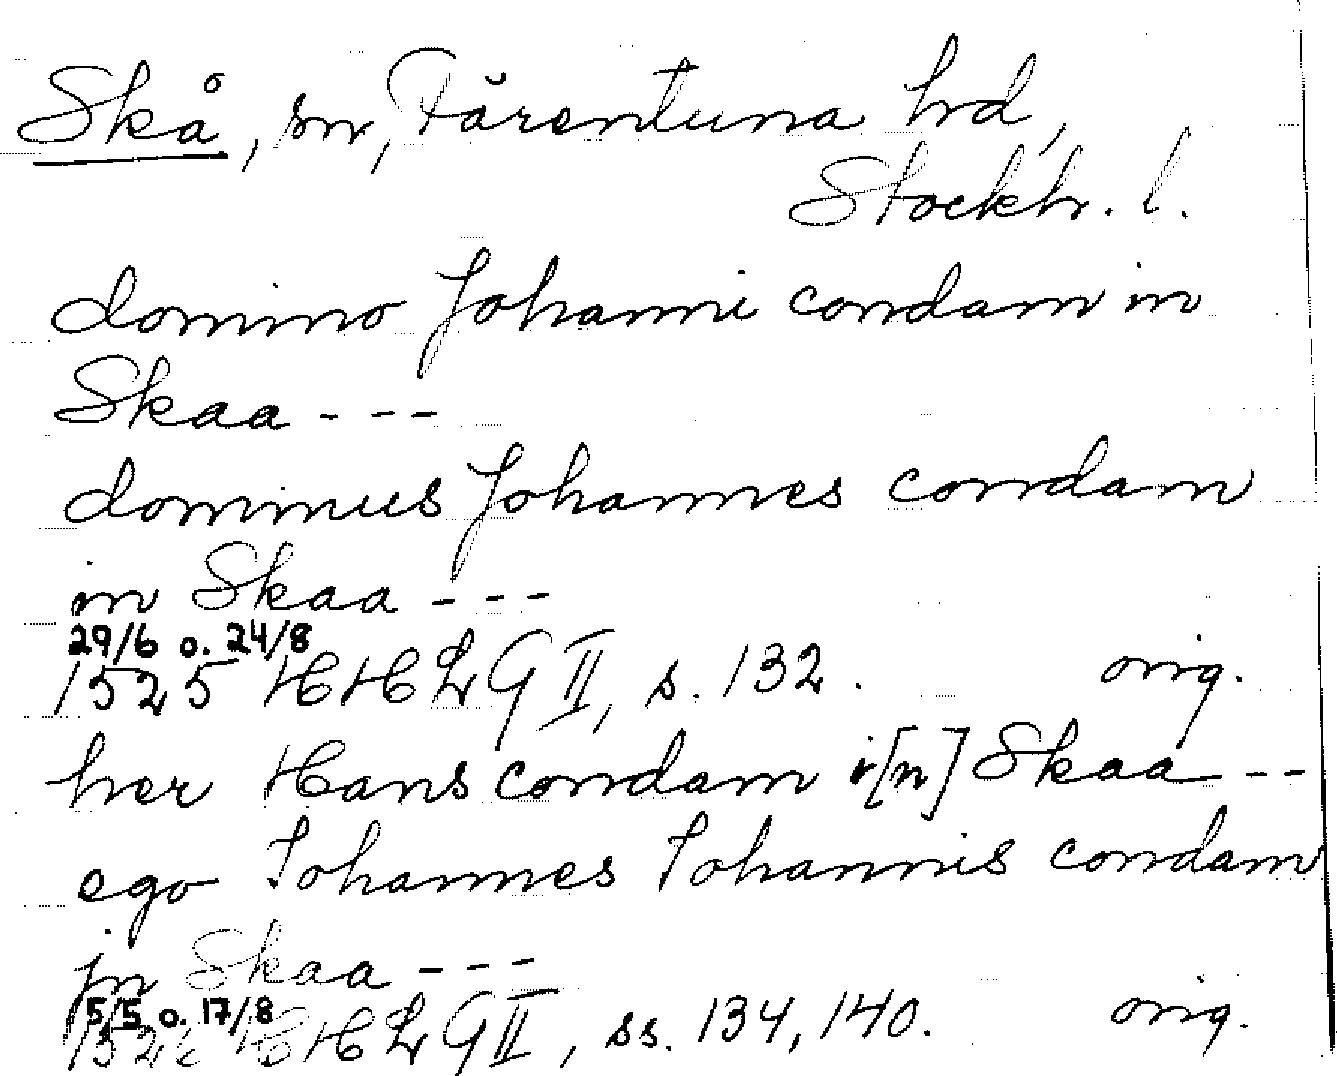 Skå, sn, Färentuna hd,
Stockh. l.
domino Johanni condam in
Skaa - - -
dominus Johannes condam
in Skaa - - -
29/6 o. 24/8
1525 HHLG II, s. 132. orig.
her Hans condam i[n] Skaa - -
ego Johannes Johannis condam
jn Skaa - - -
5/5 o. 17/8
HHLG II, ss. 134, 140. orig.